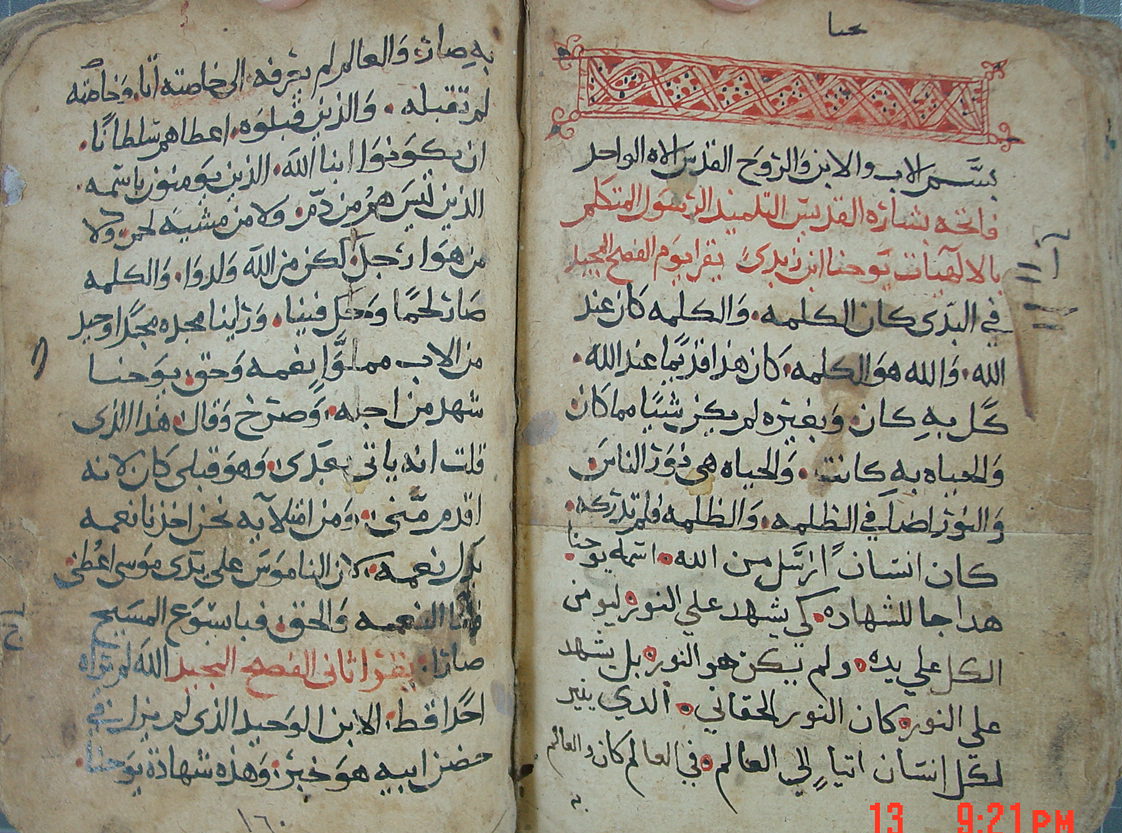 بسم الاب والابن والروح القدس الاه الواحد
فاتحه بشارة القديس التلميذ الرسول المتكلم
بالالهيات يوحنا ابن زبدى يقرا يوم الفصح المجيد
في البدى كان الكلمه. والكلمه كان عند
الله. والله هو الكلمه. كان هذا قديما عند الله.
كل به كان. وبغيره لم يكن شيئا مما كان
والحياه به كانت. والحياه هى نور الناس.
والنور اضا في الظلمه. والظلمه فلم تدركه.
كان انسانا ارسل من الله. اسمه يوحنا
هدا جا للشهاده. كي يشهد علي النور. ليومن
الكل علي يده. ولم يكن هو النور. بل يشهد
على النور. كان النور الحقاني. الدي ينير
لكل انسان اتيا إلي العالم. في العالم كان والعالم
به صار. والعالم لم يعرفه. الى خاصته اتا. وخاصته
لم تقبله. والذين قبلوه. اعطاهم سلطانا.
ان يكونوا ابنا الله. الذين يومنوز باسمه.
الذين ليس هم من دم. ولا من مشية لحم. ولا
من هوا رجل. لكن من الله ولدوا. والكلمه
صار لحما وحل فينيا. وراينا مجده مجدا وحيد
من الاب مملوا نعمه وحق. يوحنا
شهد من اجله. وصرخ وقال. هدا الذى
قلت انه ياتى بعدى. وهو قبلى كان لانه
اقدم منى. ومن امتلآيه نحن اخذنا نعمه
بدل نعمه. لان الناموس على يدى موسى اعطى.
فاما النعمه والحق. فبايسوع المسيح
صارا. يقرا ثانى الفصح المجيد الله لم يراه
احدا قط. الابن الوحيد الذى لم يزل في
حضن ابيه هو خبر. وهذه شهادة يوحنا.
١٦٠
13 9:21 PM